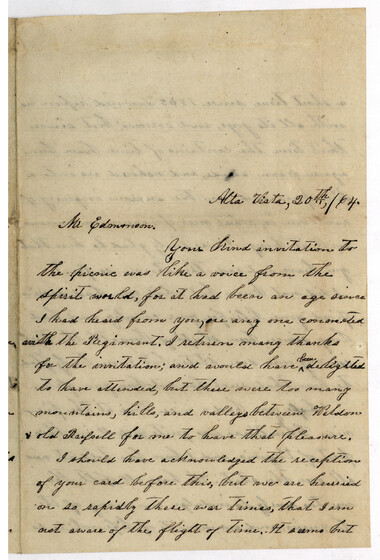 Alta Vista, 20th, /64.
Mr Edmonson.
Your kind invitation to
the picnic was like a voice from the
spirit world, for it had been an age since
I had heard from you, or any one connected
with the Regiment. I return many thanks
for the invitation; and would have been delighted
to have attended, but there were too many
mountains, hills, and valleys between Weldon
& old for me to have that pleasure.
I should have acknowledged the reception
of your card before this, but we are hurried
on so rapidly these war times, that I am
not aware of the flight of time. It seems but